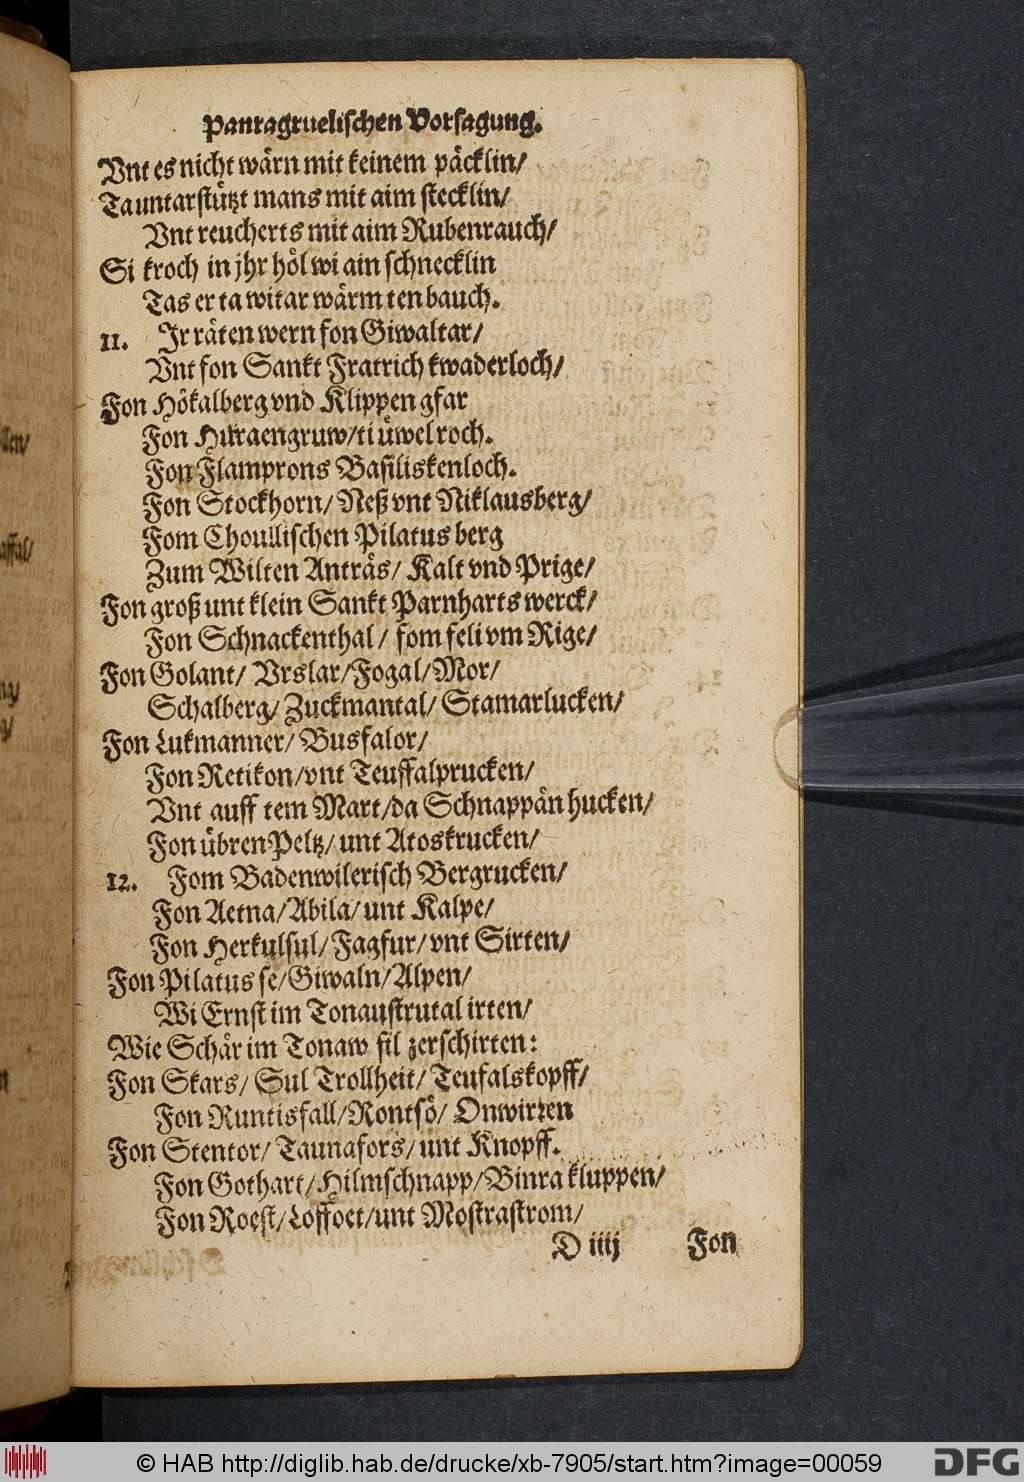 Pantagruelischen Vorsagung.
Vnt es nicht wärn mit keinem päcklin/
Tauntarstützt mans mit aim stecklin/
Vnt reucherts mit aim Rubenrauch/
Si kroch in jhr höl wi ain schnecklin
Tas er ta witar wärm ten bauch.
11. Jr räten wern fon Giwaltar/
Vnt fon Sankt Fratrich kwaderloch/
Fon Hökalberg vnd Klippen gfar
Fon Huraengruw/ti üwel roch.
Fon Flamprons Basiliskenloch.
Fon Stockhorn/ Neß vnt Niklausberg/
Fom Choullischen Pilatus berg
Zum Wilten Anträs/ Kalt vnd Prige/
Fon groß unt klein Sankt Parnharts werck/
Fon Schnackenthal/ fom feli vm Rige/
Fon Golant/ Vrslar/Fogal/Mor/
Schalberg/ Zuckmantal/ Stamarlucken/
Fon Lukmanner/ Busfalor/
Fon Retikon/vnt Teuffalprucken/
Vnt auff tem Mart/da Schnappän hucken/
Fon übren Peltz/ unt Atoskrucken/
12. Fom Badenwilerisch Bergrucken/
Fon Aetna/Abila/ unt Kalpe/
Fon Herkulsul/ Fagfur/ vnt Sirten/
Fon Pilatus se/Giwaln/Alpen/
Wi Ernst im Tonaustrutal irten/
Wie Schär im Tonaw fil zerschirten:
Fon Skars/ Sul Trollheit/ Teufalskopff/
Fon Runtisfall/Rontsö/ Onwirten
Fon Stentor/ Taunafors/ unt Knopff.
Fon Gothart/Hilmschnapp/Binra kluppen/
Fon Roest/Loffoet/unt Mostrastrom/
D iiij Fon
© HAB http://diglib.hab.de/drucke/xb-7905/start.htm?image=00059
DFG